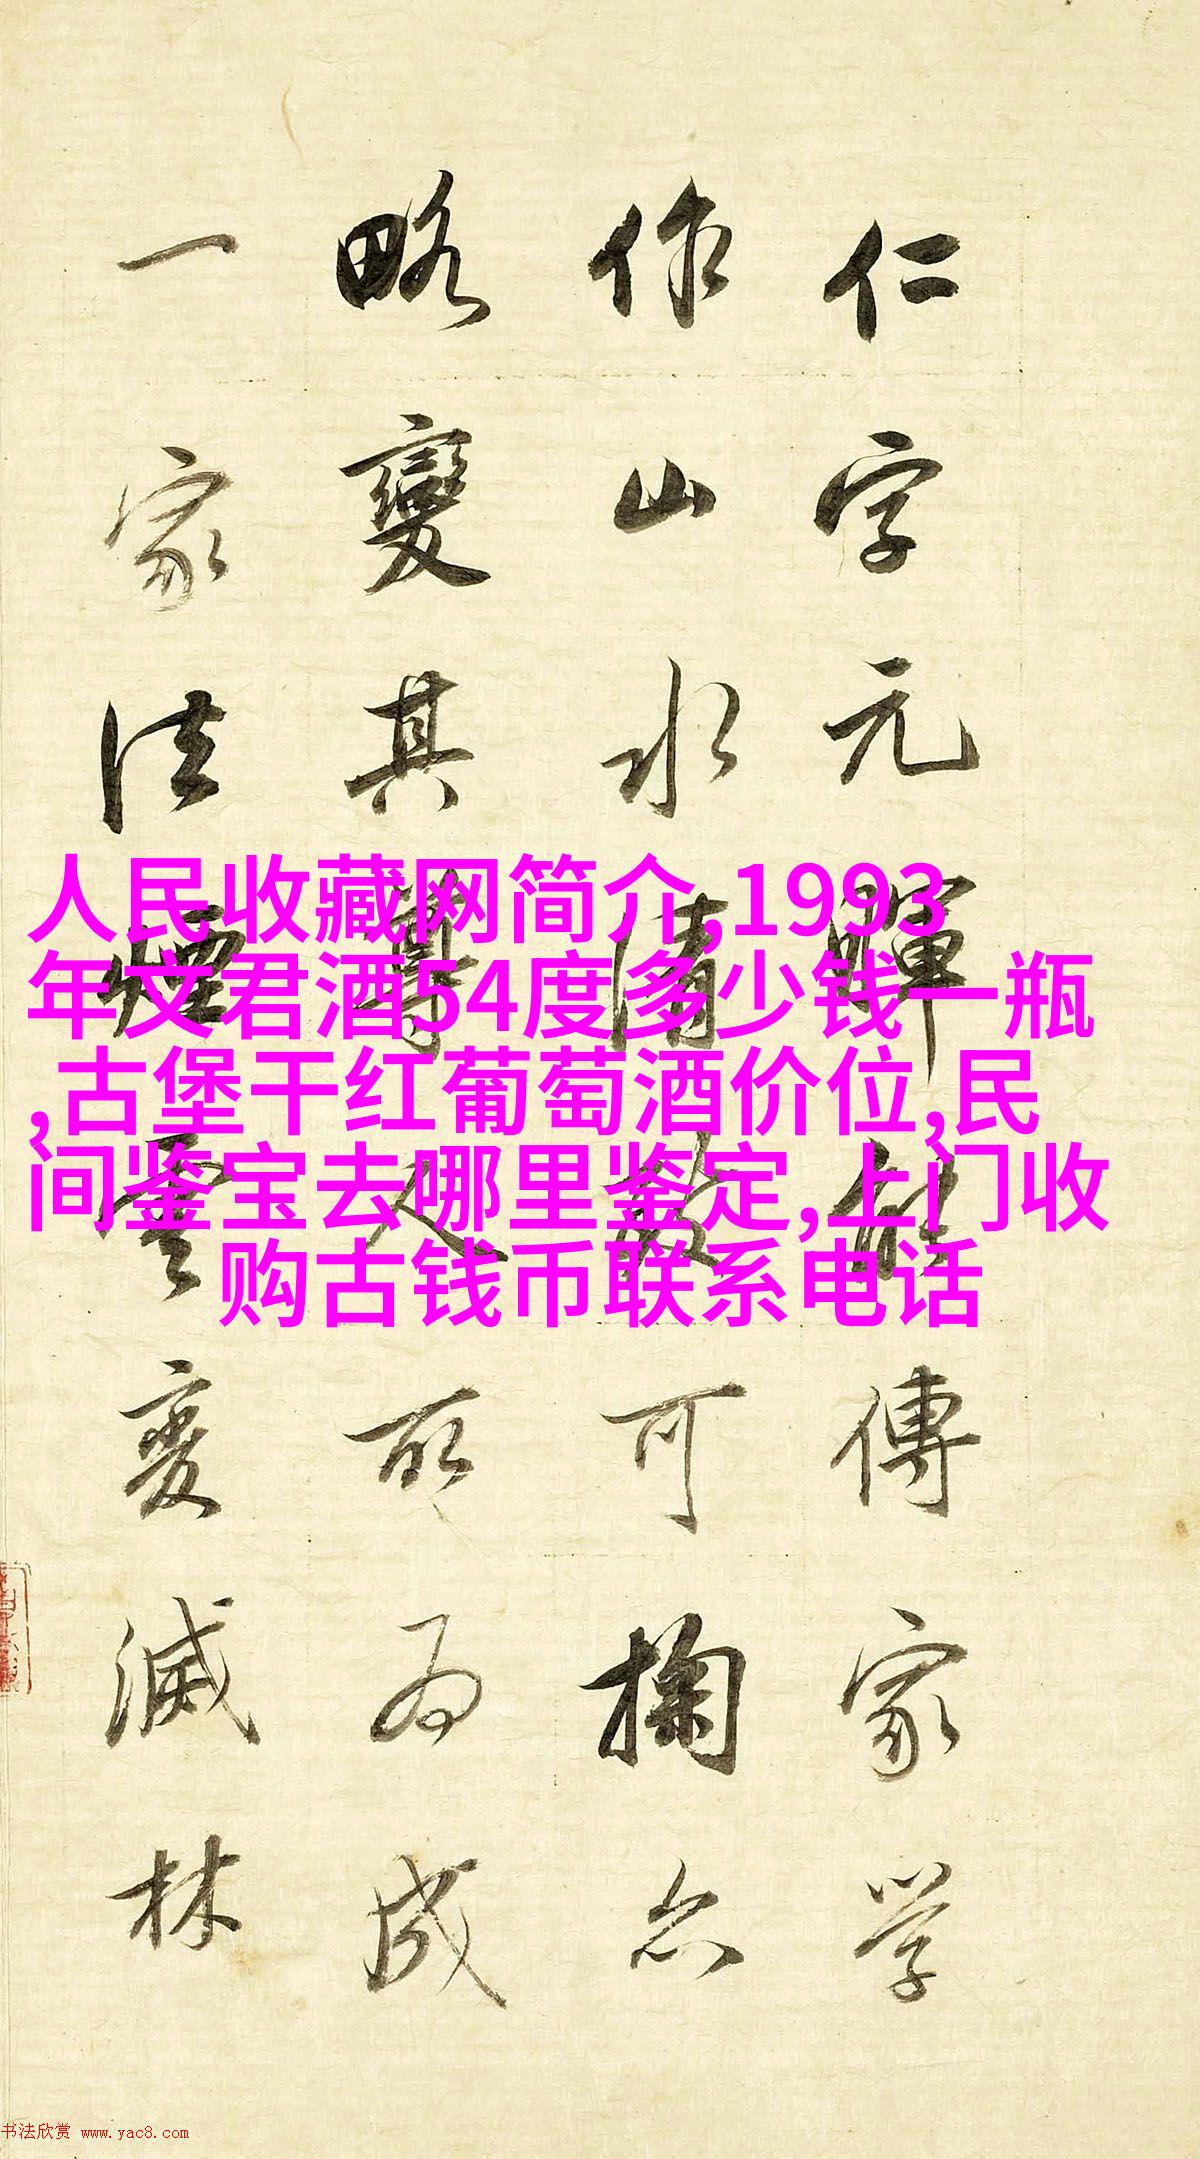 仁字元暉能傳家學
作山水清致可掬亦
略變其尊人所為成
一家法煙雲變滅林
人民收藏网简介,1993
年文君酒54度多少钱一瓶
,古堡干红葡萄酒价位,民
间鉴宝去哪里鉴定,上门收
购古钱币联系电话
书法欣赏 www.yac8.com